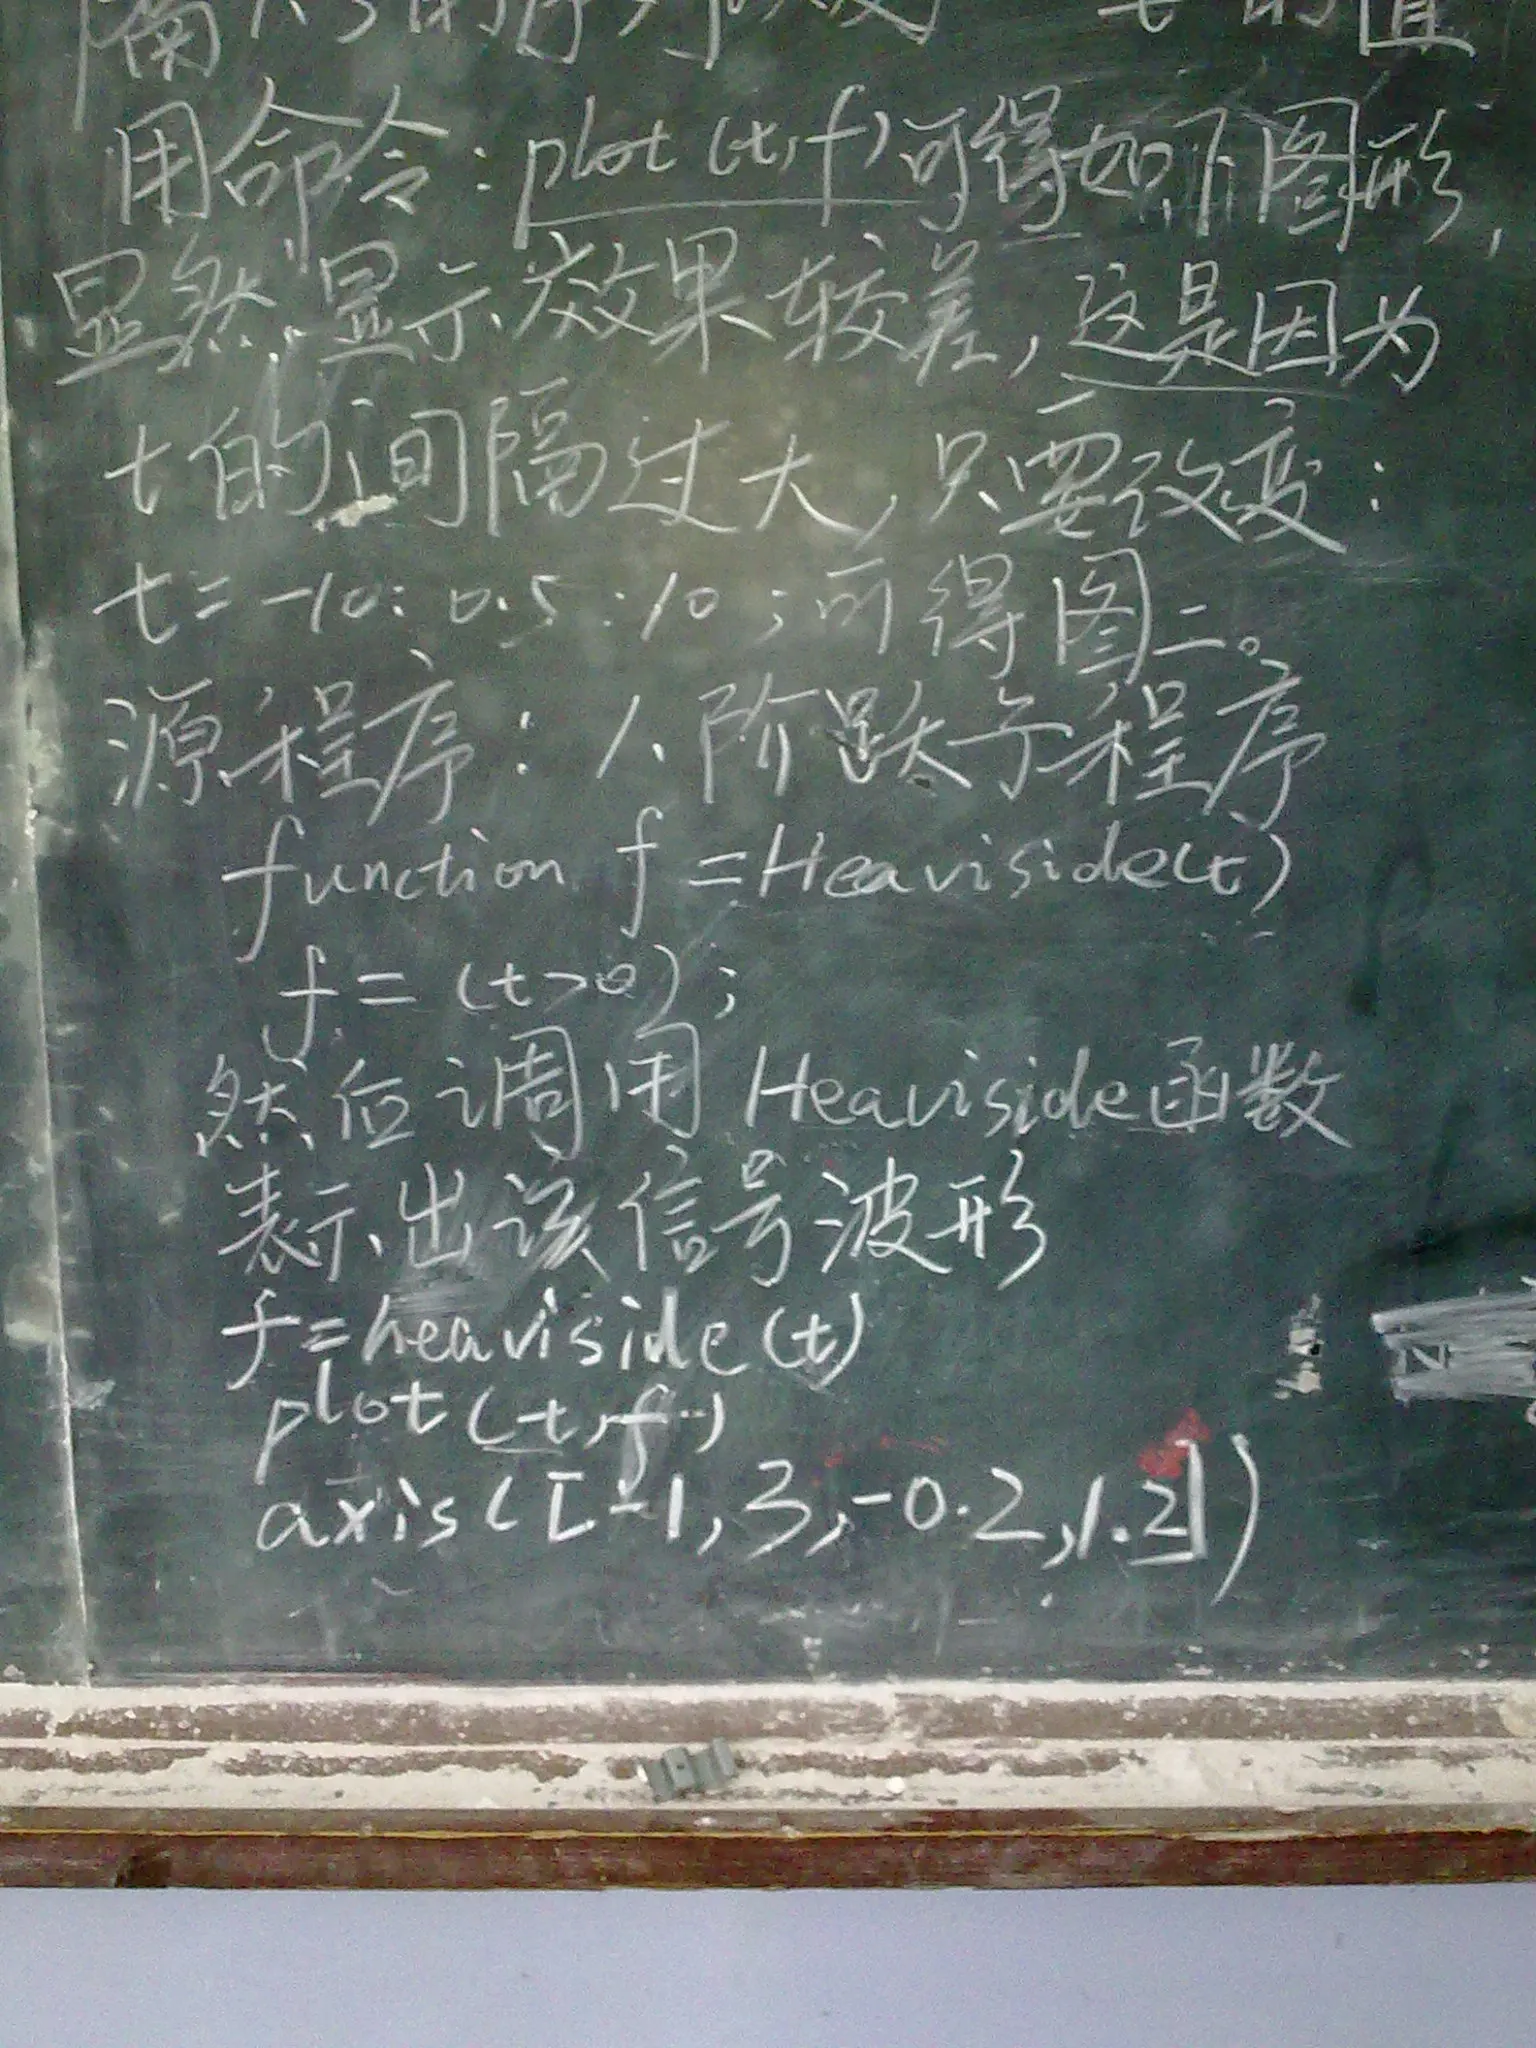 隔为的序列以及 t的值
用命令：plot(t,f)可得如下图形,
显然显示效果较差，这是因为
t的间隔过大,只要改变：
t=-10:0.5:10;可得图二。
源程序：1、阶跃子程序
function f=Heaviside(t)
f=(t>0);
然后调用Heaviside函数
表示出该信号波形
f=heaviside(t)
plot(t,f)
axis([-1,3,-0.2,1.2])